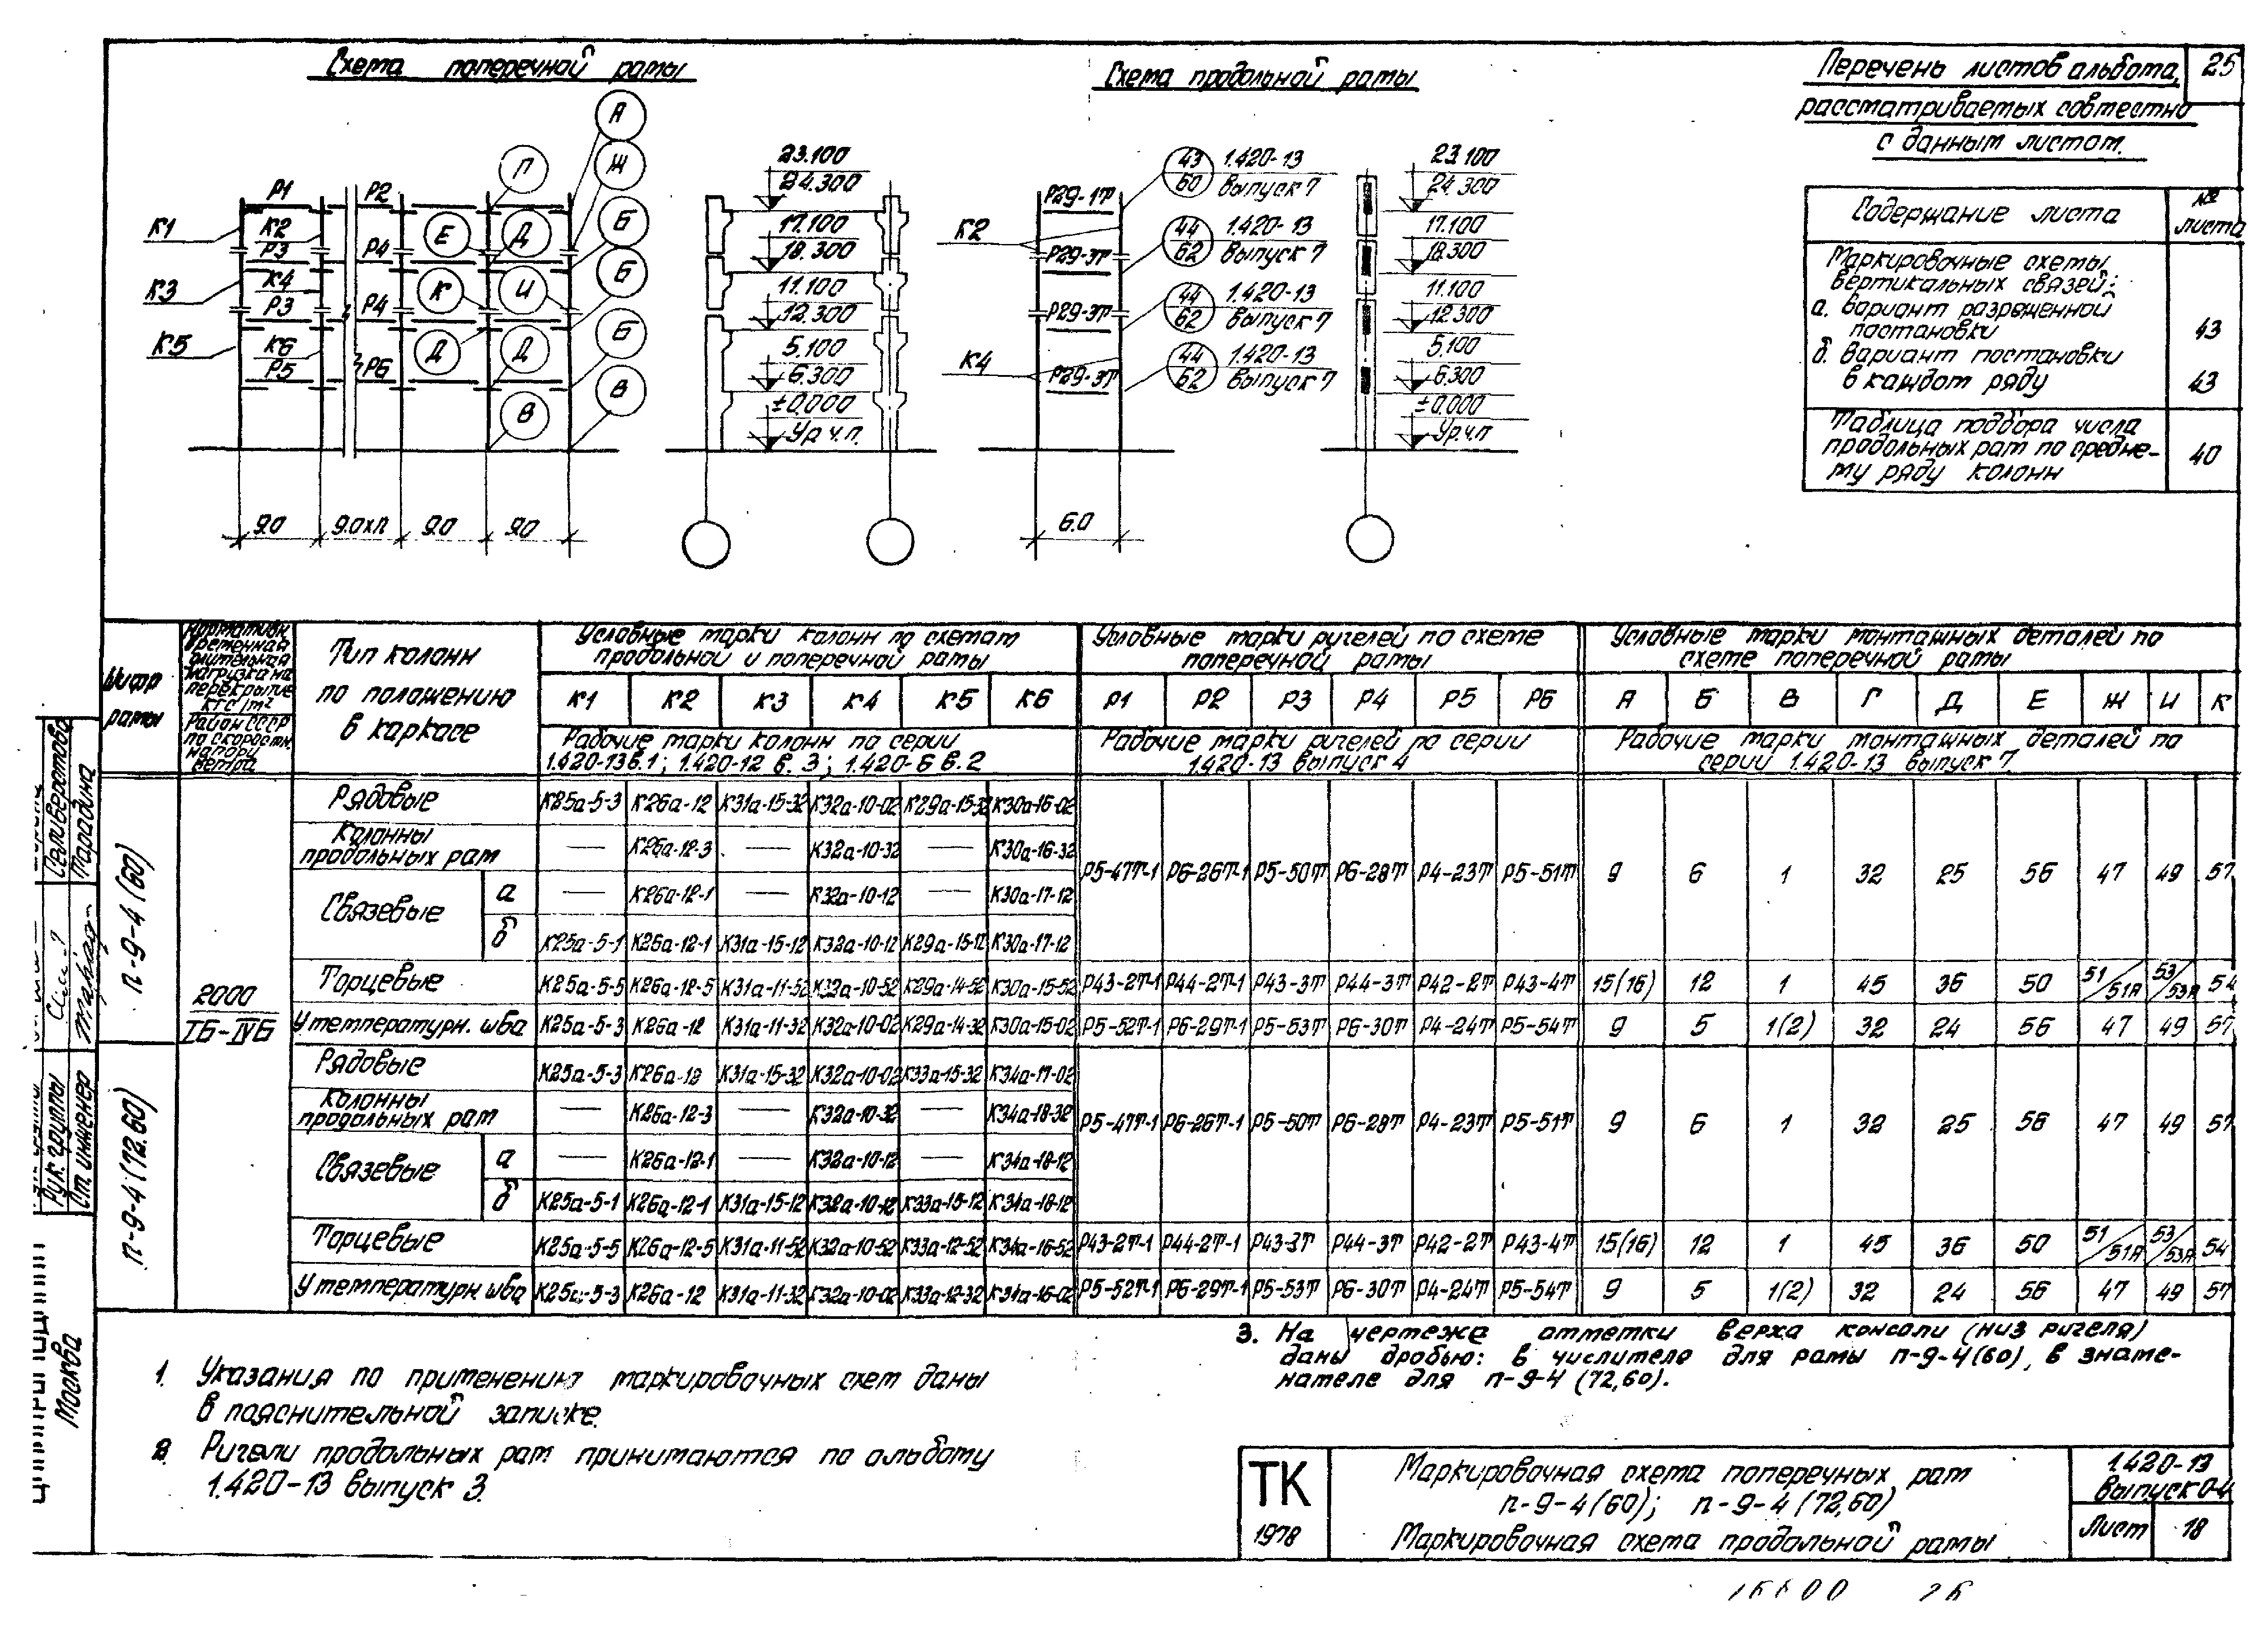 25
Схема поперечной рамы
Схема продольной рамы
Перечень листов альбома,
рассматриваемых совместно
с данным листом.
Содержание листа
№ листа
Маркировочные схемы
вертикальных связей:
а. вариант разряженной
постановки
43
б. вариант постановки
в каждом ряду
43
Таблица подбора числа
продольных рам по средне-
му ряду колонн
40
А
П
Ж
Р1
Р2
К1
К2
Р3
Р4
Е
Д
Б
К3
К4
Р3
Р4
К
И
Б
К5
К6
Р5
Р6
Д
Д
Б
В
В
9.0
9.0хп
9.0
9.0
23.100
24.300
17.100
18.300
11.100
12.300
5.100
6.300
±0.000
Ур.ч.п.
Р29-1т
К2
Р29-3т
Р29-3т
К4
Р29-3т
43
60
1.420-13
выпуск 7
44
62
1.420-13
выпуск 7
44
62
1.420-13
выпуск 7
44
62
1.420-13
выпуск 7
6.0
23.100
24.300
17.100
18.300
11.100
12.300
5.100
6.300
±0.000
Ур.ч.п
Шифр
рамы
Нормативн.
временная
длительная
нагрузка на
перекрытие
кгс/м²
Район СССР
по скоростн.
напору
ветра
Тип колонн
по положению
в каркасе
Условные марки колонн по схемам
продольной и поперечной рамы
Условные марки ригелей по схеме
поперечной рамы
Условные марки монтажных деталей по
схеме поперечной рамы
К1 К2 К3 К4 К5 К6 Р1 Р2 Р3 Р4 Р5 Р6 А Б В Г Д Е Ж И К
Рабочие марки колонн по серии
1.420-13 в.1; 1.420-12 в.3; 1.420-6 в.2
Рабочие марки ригелей по серии
1.420-13 выпуск 4
Рабочие марки монтажных деталей по
серии 1.420-13 выпуск 7
п-9-4(60)
2000
IБ-IVБ
Рядовые К25а-5-3 К26а-12 К31а-15-32 К32а-10-02 К29а-15-32 К30а-16-02
Колонны
продольных рам — К26а-12-3 — К32а-10-32 — К30а-16-32
Р5-47т-1 Р6-26т-1 Р5-50т Р6-28т Р4-23т Р5-51т 9 6 1 32 25 56 47 49 57
Связевые
а — К26а-12-1 — К32а-10-12 — К30а-17-12
б К25а-5-1 К26а-12-1 К31а-15-12 К32а-10-12 К29а-15-12 К30а-17-12
Торцевые К25а-5-5 К26а-12-5 К31а-11-52 К32а-10-52 К29а-14-52 К30а-15-52 Р43-2т-1 Р44-2т-1 Р43-3т Р44-3т Р42-2т Р43-4т 15(16) 12 1 45 36 50 51/51А 53/53А 54
У температурн. шва К25а-5-3 К26а-12 К31а-11-32 К32а-10-02 К29а-14-32 К30а-15-02 Р5-52т-1 Р6-29т-1 Р5-53т Р6-30т Р4-24т Р5-54т 9 5 1(2) 32 24 56 47 49 57
п-9-4(72.60)
Рядовые К25а-5-3 К26а-12 К31а-15-32 К32а-10-02 К33а-15-32 К34а-17-02
Колонны
продольных рам — К26а-12-3 — К32а-10-32 — К34а-18-32
Р5-47т-1 Р6-26т-1 Р5-50т Р6-28т Р4-23т Р5-51т 9 6 1 32 25 56 47 49 57
Связевые
а — К26а-12-1 — К32а-10-12 — К34а-18-12
б К25а-5-1 К26а-12-1 К31а-15-12 К32а-10-12 К33а-15-12 К34а-18-12
Торцевые К25а-5-5 К26а-12-5 К31а-11-52 К32а-10-52 К33а-12-52 К34а-16-52 Р43-2т-1 Р44-2т-1 Р43-3т Р44-3т Р42-2т Р43-4т 15(16) 12 1 45 36 50 51/51А 53/53А 54
У температурн. шва К25а-5-3 К26а-12 К31а-11-32 К32а-10-02 К33а-12-32 К34а-16-02 Р5-52т-1 Р6-29т-1 Р5-53т Р6-30т Р4-24т Р5-54т 9 5 1(2) 32 24 56 47 49 57
1. Указания по применению маркировочных схем даны
в пояснительной записке.
2. Ригели продольных рам принимаются по альбому
1.420-13 выпуск 3.
3. На чертеже отметки верха консоли (низ ригеля)
даны дробью: в числителе для рамы п-9-4(60), в знаме-
нателе для п-9-4(72,60).
ТК
1978
Маркировочная схема поперечных рам
п-9-4(60); п-9-4(72,60)
Маркировочная схема продольной рамы
1.420-13
Выпуск 0-4
Лист 18
Селиверстова
Тарадина
Рук. группы
Ст. инженер
Москва